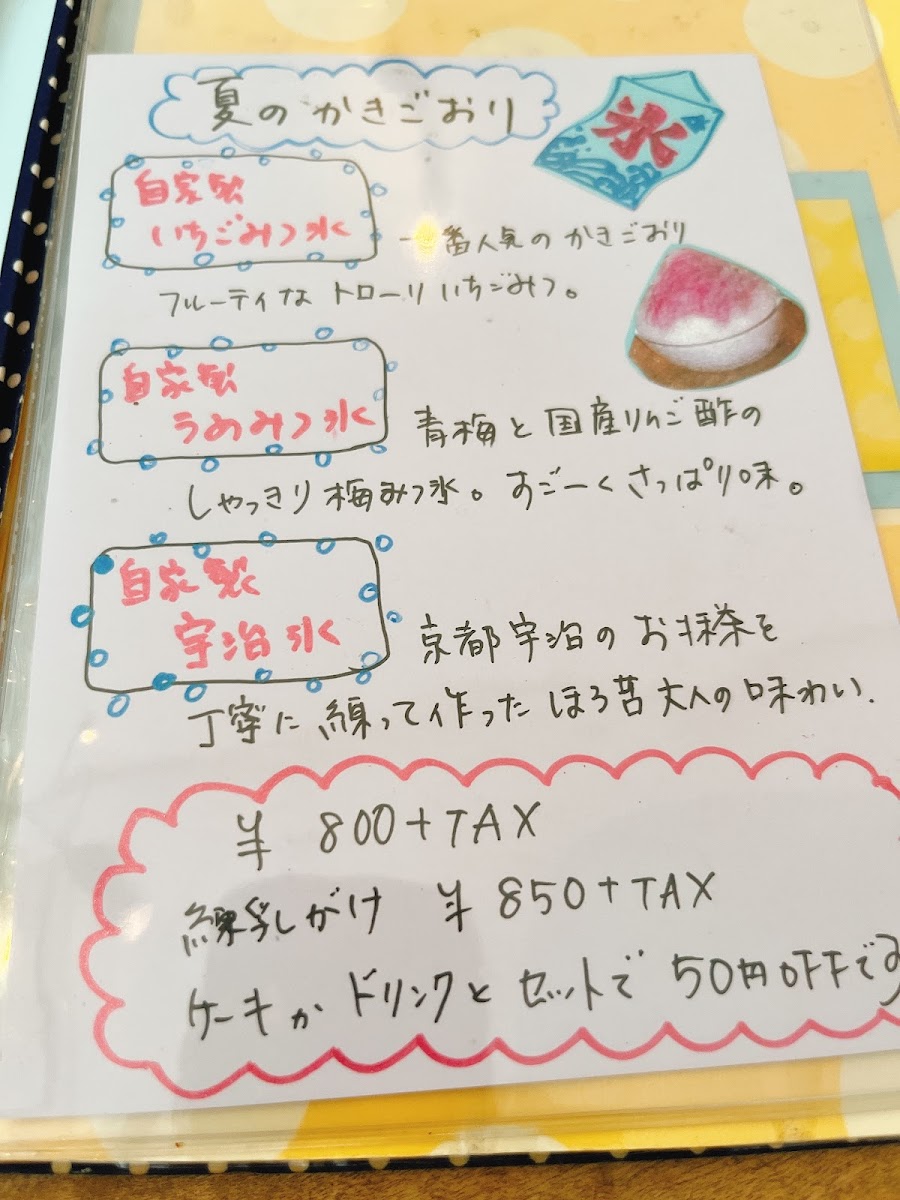 夏のかきごおり
氷
自家製
いちごみつ氷
一番人気のかきごおり
フルーティな トローリ いちごみつ。
自家製
うめみつ氷
青梅と国産りんご酢の
しゃっきり梅みつ氷。すごーくさっぱり味。
自家製
宇治氷
京都宇治のお抹茶を
丁寧に練って作ったほろ苦大人の味わい.
¥ 800+TAX
練乳がけ ¥ 850+TAX
ケーキか ドリンクと セットで 50円OFFです